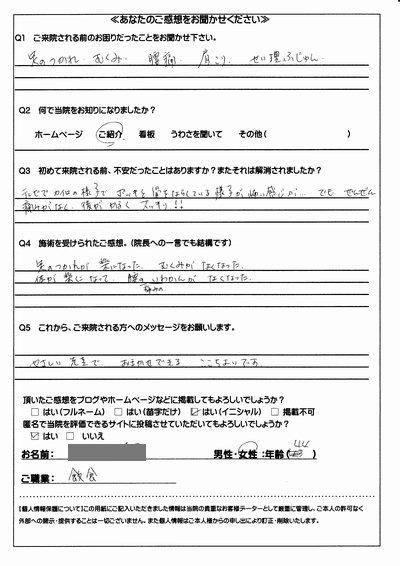 ≪あなたのご感想をお聞かせください≫
Q1 ご来院される前のお困りだったことをお聞かせ下さい。
足のつかれ、むくみ、腰痛、肩こり、せい理ふじゅん、
Q2 何で当院をお知りになりましたか？
ホームページ ご紹介 看板 うわさを聞いて その他( )
Q3 初めて来院される前、不安だったことはありますか？またそれは解消されましたか？
テレビでカイロの様子で ボッキと骨をならしている様子が痛い感じが… でも ぜんぜん
痛みがなく、体がかるく スッキリ!!
Q4 施術を受けられたご感想。(院長への一言でも結構です)
足のつかれが楽になった、むくみがなくなった、
体が楽になって、腰の いわかんが なくなった、
痛みの
Q5 これから、ご来院される方へのメッセージをお願いします。
やさしい先生で、おまかせできる、ここちよいです
頂いたご感想をブログやホームページなどに掲載してもよろしいでしょうか？
□はい(フルネーム) □はい(苗字だけ) ☑はい(イニシャル) □掲載不可
匿名で当院を評価できるサイトに投稿させていただいてもよろしいでしょうか？
☑はい □いいえ
お名前: 男性・女性:年齢( 44 )
ご職業: 飲食
【個人情報保護について】この用紙にご記入いただきました情報は当院の貴重なお客様データーとして厳重に管理し、ご本人の許可なく
外部への開示・提供することは一切ございません。また個人情報はご本人様からの申し出により訂正・削除いたします。